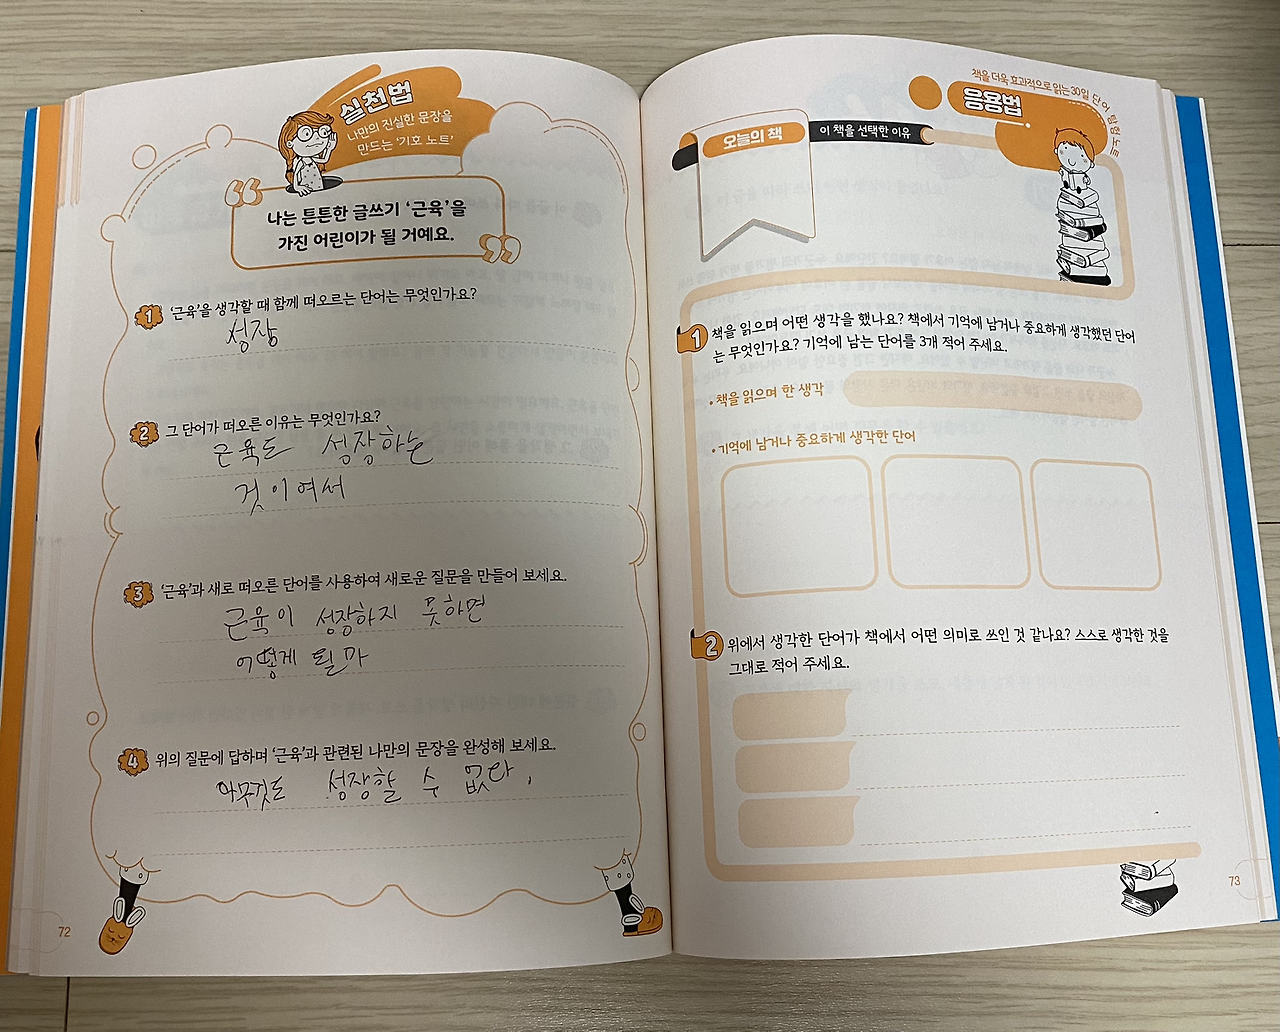 실천법
나만의 진실한 문장을
만드는 '기호 노트'
나는 튼튼한 글쓰기 '근육'을
가진 어린이가 될 거예요.
1 '근육'을 생각할 때 함께 떠오르는 단어는 무엇인가요?
성장
2 그 단어가 떠오른 이유는 무엇인가요?
근육도 성장하는
것이여서
3 '근육'과 새로 떠오른 단어를 사용하여 새로운 질문을 만들어 보세요.
근육이 성장하지 못하면
어떻게 될까
4 위의 질문에 답하며 '근육'과 관련된 나만의 문장을 완성해 보세요.
아무것도 성장할 수 없다.
72
책을 더욱 효과적으로 읽는 30일 단어 탐험 노트
응용법
오늘의 책
이 책을 선택한 이유
1 책을 읽으며 어떤 생각을 했나요? 책에서 기억에 남거나 중요하게 생각했던 단어
는 무엇인가요? 기억에 남는 단어를 3개 적어 주세요.
• 책을 읽으며 한 생각
• 기억에 남거나 중요하게 생각한 단어
2 위에서 생각한 단어가 책에서 어떤 의미로 쓰인 것 같나요? 스스로 생각한 것을
그대로 적어 주세요.
73